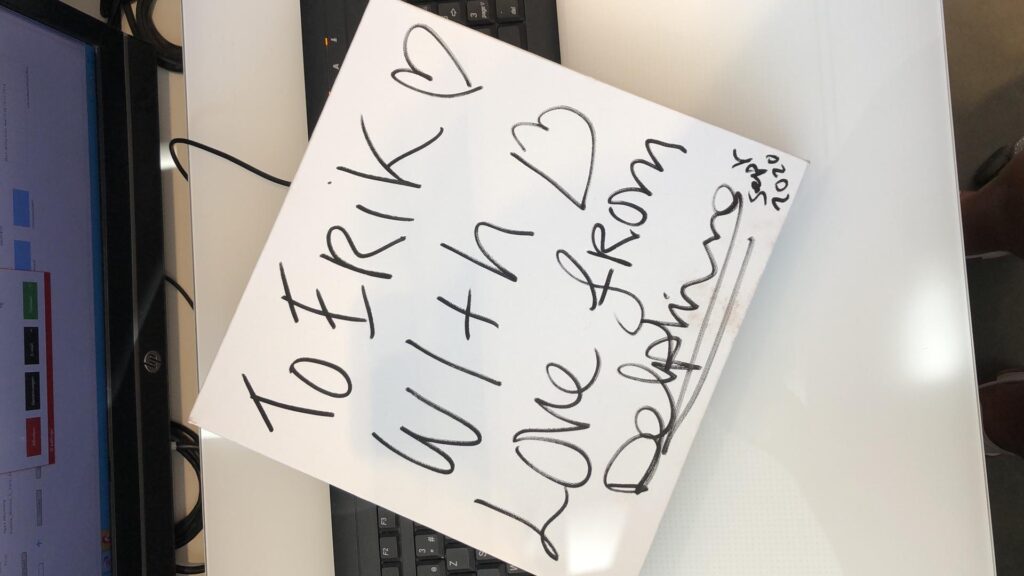 To ERIK
With
Love from
Delphine
Sept
2020
hp